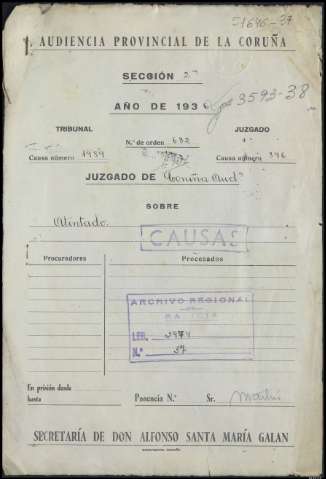 51646-37
AUDIENCIA PROVINCIAL DE LA CORUÑA
SECCIÓN 2ª
AÑO DE 1936
3593-38
TRIBUNAL
N.º de orden 632
JUZGADO
Causa número 1989
Causa número 396
JUZGADO DE Coruña Aud.ª
SOBRE
Atentado.
CAUSAS
Procuradores
Procesados
ARCHIVO REGIONAL
GALICIA
LEG. 3974
N.º 37
En prisión desde
hasta
Ponencia N.º
Sr.
SECRETARÍA DE DON ALFONSO SANTA MARÍA GALAN